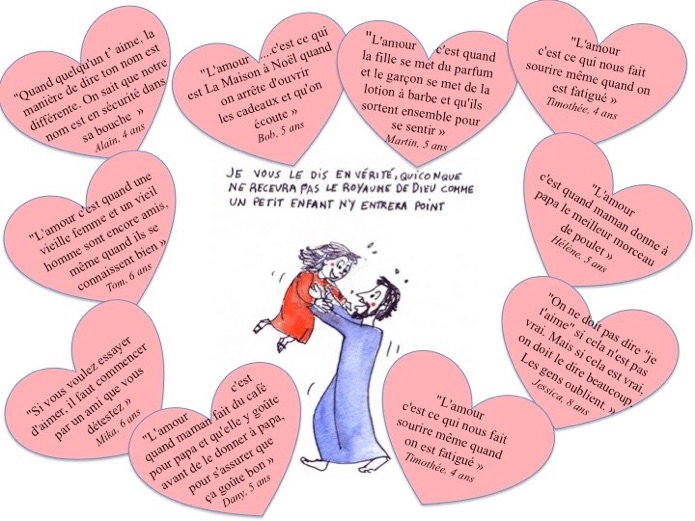 "Quand quelqu'un t' aime, la
manière de dire ton nom est
différente. On sait que notre
nom est en sécurité dans
sa bouche »
Alain, 4 ans
"L'amour ....c'est ce qui
est La Maison à Noël quand
on arrête d'ouvrir
les cadeaux et qu'on
écoute »
Bob, 5 ans
"L'amour c'est quand
la fille se met du parfum
et le garçon se met de la
lotion à barbe et qu'ils
sortent ensemble pour
se sentir »
Martin, 5 ans
"L'amour
c'est ce qui nous fait
sourire même quand on
est fatigué »
Timothée, 4 ans
JE VOUS LE DIS EN VÉRITÉ, QUICONQUE
NE RECEVRA PAS LE ROYAUME DE DIEU COMME
UN PETIT ENFANT N'Y ENTRERA POINT
"L'amour c'est quand une
vieille femme et un vieil
homme sont encore amis,
même quand ils se
connaissent bien »
Tom, 6 ans
"L'amour
c'est quand maman donne à
papa le meilleur morceau
de poulet »
Hélène, 5 ans
"On ne doit pas dire "je
t'aime" si cela n'est pas
vrai. Mais si cela est vrai,
on doit le dire beaucoup.
Les gens oublient. »
Jessica, 8 ans
"Si vous voulez essayer
d'aimer, il faut commencer
par un ami que vous
détestez »
Mika, 6 ans
"L'amour c'est
quand maman fait du café
pour papa et qu'elle y goûte
avant de le donner à papa,
pour s'assurer que
ça goûte bon »
Dany, 5 ans
"L'amour
c'est ce qui nous fait
sourire même quand
on est fatigué »
Timothée, 4 ans